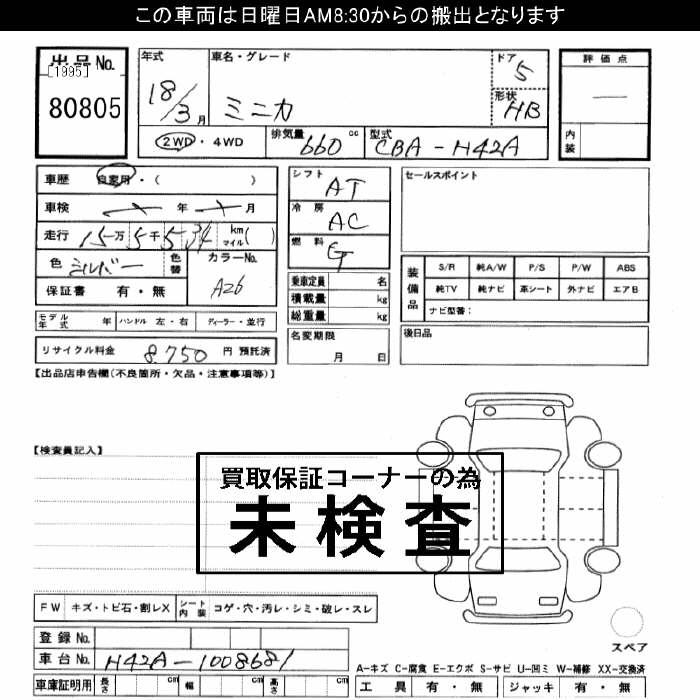 この車両は日曜日AM8:30からの搬出となります
出品No.
[1995]
80805
年式
18/3月
車名・グレード
ミニカ
ドア
5
形状
HB
評価点
—
内装
2WD・4WD
排気量 660 cc
型式 CBA-H42A
車歴 自家用・( )
車検 年 月
走行 15万5千5 34 km マイル( )
色 シルバー
色替
カラーNo.
A26
保証書 有・無
モデル年式 年 ハンドル 左・右 ディーラー・並行
リサイクル料金 8.750 円 預託済
シフト
AT
冷房
AC
燃料
G
乗車定員 名
積載量 kg
総重量 kg
名変期限
月 日
セールスポイント
装備品
S/R 純A/W P/S P/W ABS
純TV 純ナビ 革シート 外ナビ エアB
ナビ型番:
後日品
【出品店申告欄(不良箇所・欠品・注意事項等)】
【検査員記入】
買取保証コーナーの為
未検査
FW キズ・トビ石・割レX シート内装 コゲ・穴・汚レ・シミ・破レ・スレ
登録No.
車台No. H42A-1008681
車庫証明用 長さ cm 幅 cm 高さ cm
スペア
A-キズ C-腐食 E-エクボ S-サビ U-凹ミ W-補修 XX-交換済
工具 有・無 ジャッキ 有・無